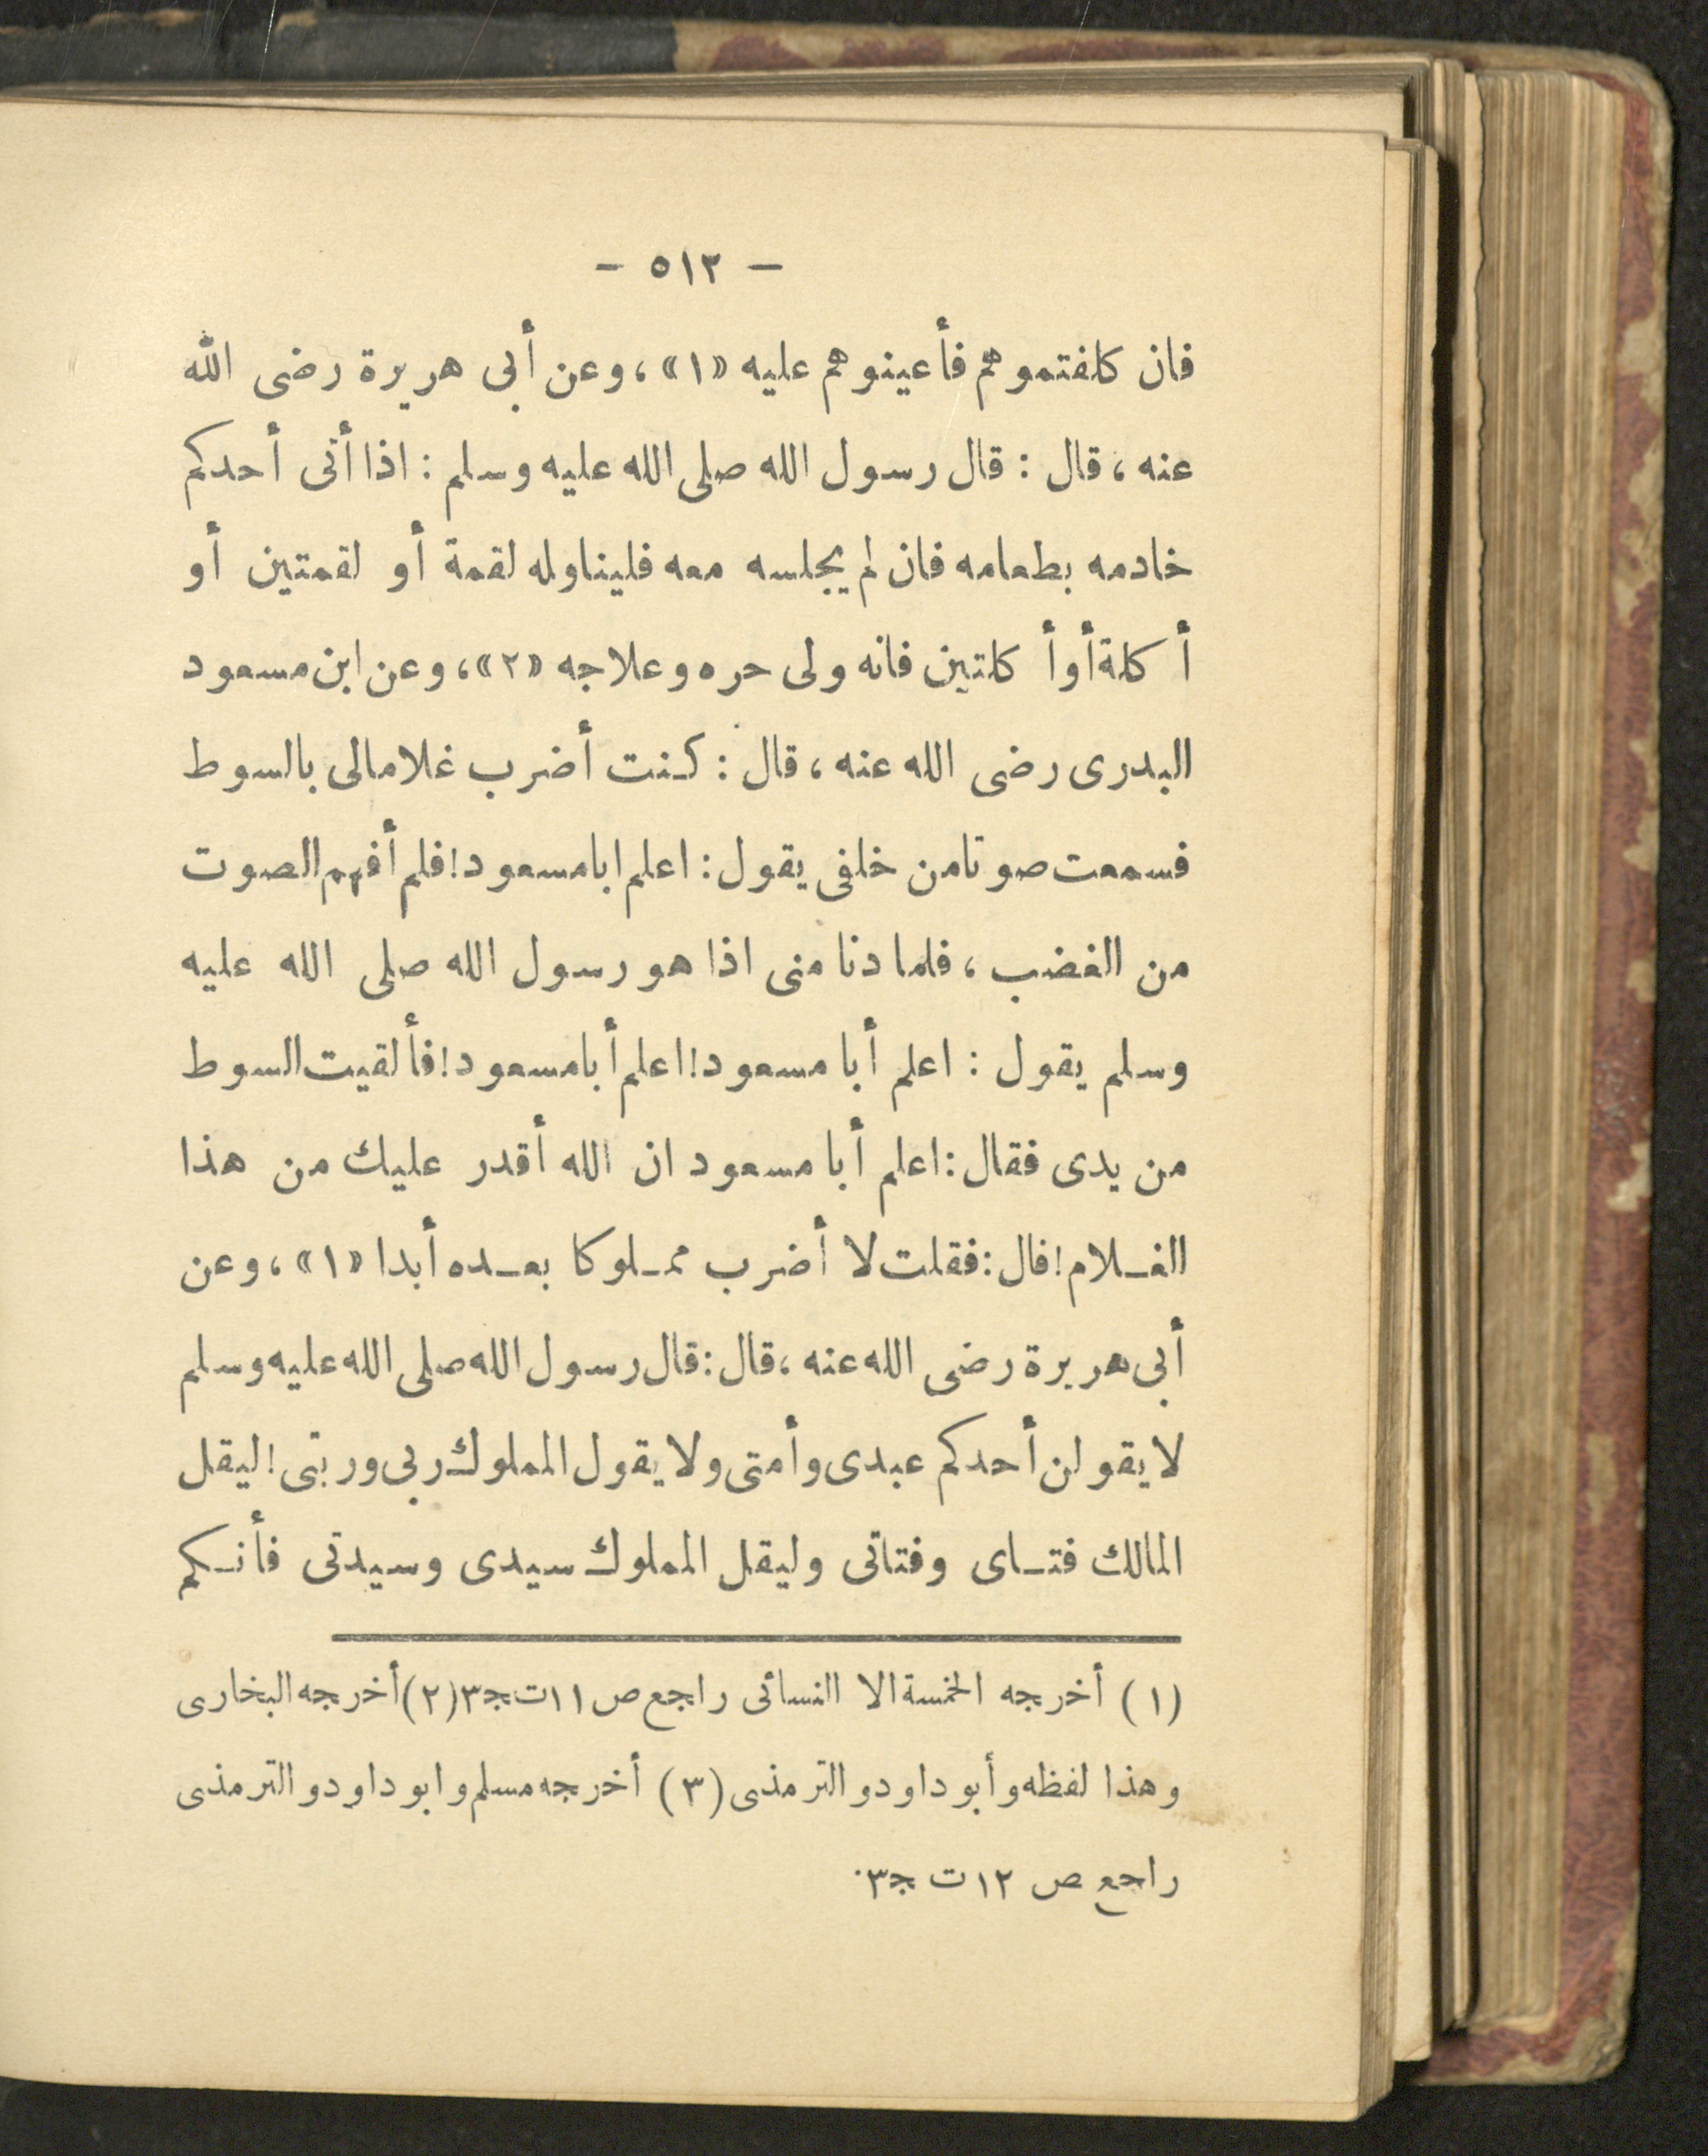 - ٥١٢ -
فان كلفتموهم فأعينوهم عليه «١» ، وعن أبى هريرة رضى الله
عنه ، قال : قال رسول الله صلى الله عليه وسلم : اذا أتى أحدكم
خادمه بطعامه فان لم يجلسه معه فليناوله لقمة أو لقمتين أو
أكلة أو أكلتين فانه ولى حره وعلاجه «٢» ، وعن ابن مسعود
البدرى رضى الله عنه ، قال : كنت أضرب غلاما لى بالسوط
فسمعت صوتا من خلفى يقول : اعلم ابا مسعود! فلم أفهم الصوت
من الغضب ، فلما دنا منى اذا هو رسول الله صلى الله عليه
وسلم يقول : اعلم أبا مسعود! اعلم أبا مسعود! فألقيت السوط
من يدى فقال : اعلم أبا مسعود ان الله أقدر عليك من هذا
الغـلام! قال : فقلت لا أضرب ممـلوكا بعـده أبدا «١» ، وعن
أبى هريرة رضى الله عنه ، قال : قال رسول الله صلى الله عليه وسلم
لا يقولن أحدكم عبدى وأمتى ولا يقول المملوك ربى وربتى! ليقل
المالك فتـاى وفتاتى وليقل المملوك سيدى وسيدتى فأنـكم
(١) أخرجه الخمسة الا النسائى راجع ص ١١ ت جـ٣ (٢) أخرجه البخارى
وهذا لفظه وأبو داود والترمذى (٣) أخرجه مسلم وابو داود والترمذى
راجع ص ١٢ ت جـ٣.